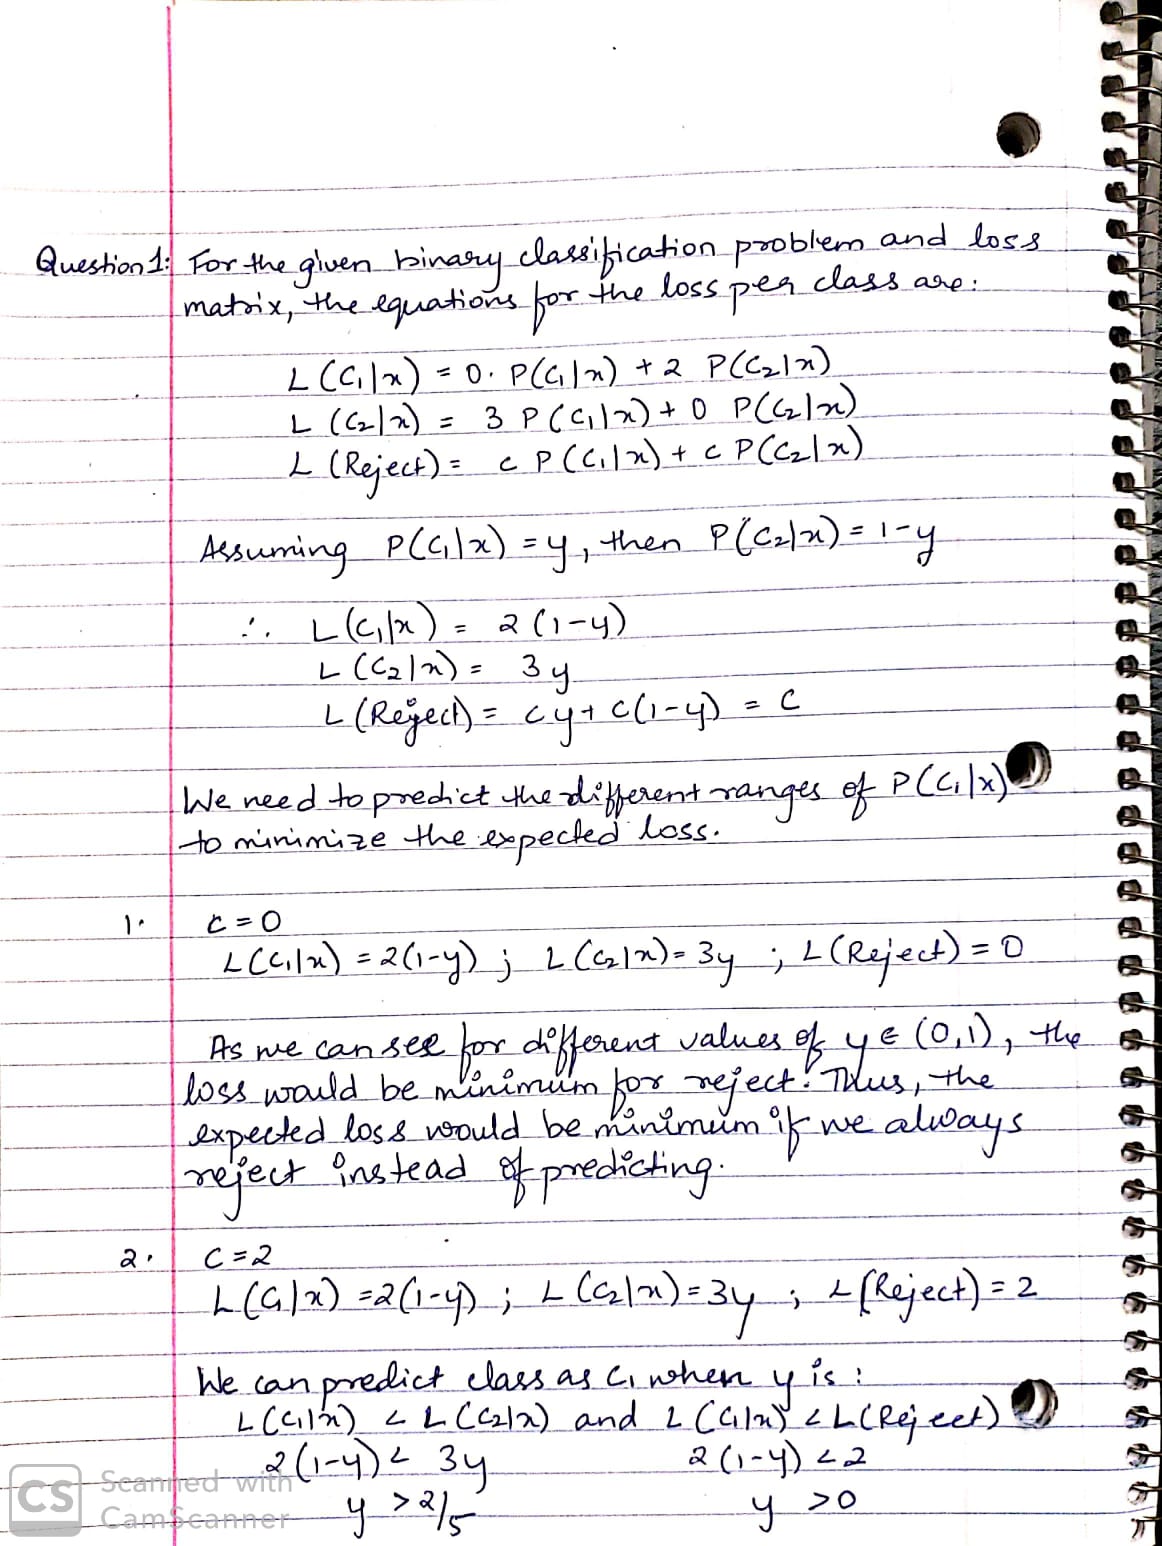 Question 1: For the given binary classification problem and loss
matrix, the equations for the loss per class are:
L(C₁|x) = 0. P(C₁|x) + 2 P(C₂|x)
L (C₂|x) = 3 P(C₁|x) + 0 P(C₂|x)
L (Reject) = c P(C₁|x) + c P(C₂|x)
Assuming P(C₁|x) = y, then P(C₂|x) = 1-y
∴ L(C₁|x) = 2(1-y)
L (C₂|x) = 3y
L (Reject) = cy + c(1-y) = c
We need to predict the different ranges of P(C₁|x)
to minimize the expected loss.
1. c = 0
L(C₁|x) = 2(1-y) ; L(C₂|x) = 3y ; L(Reject) = 0
As we can see for different values of y ∈ (0,1), the
loss would be minimum for reject. Thus, the
expected loss would be minimum if we always
reject instead of predicting.
2. C = 2
L(C₁|x) = 2(1-y) ; L(C₂|x) = 3y ; L(Reject) = 2
We can predict class as C₁ when y is :
L(C₁|x) < L(C₂|x) and L(C₁|x) < L(Reject)
2(1-y) < 3y 2(1-y) < 2
y > 2/5 y > 0
CS Scanned with
CamScanner